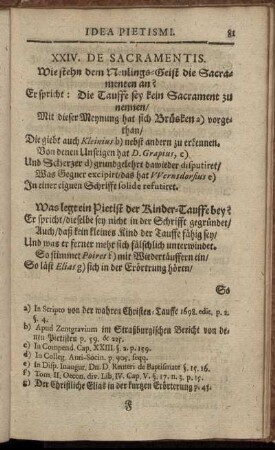 IDEA PIETISMI. 81
XXIV. DE SACRAMENTIS.
Wie stehn dem Neulings-Geist die Sacra-
menten an?
Er spricht: Die Tauffe sey kein Sacrament zu
nennen/
Mit dieser Meynung hat sich Brüsken a) vorge-
than/
Die giebt auch Kleinius b) nebst andern zu erkennen.
Von denen Unsrigen hat D. Grapius, c)
Und Scherzer d) grundgelehrt dawieder disputiret/
Was Gegner excipirt/ das hat VVernsdorfius e)
In einer eignen Schrifft solide refutiret.
Was legt ein Pietist der Kinder-Tauffe bey?
Er spricht/ dieselbe sey nicht in der Schrifft gegründet/
Auch/ daß kein kleines Kind der Tauffe fähig sey/
Und was er ferner mehr sich fälschlich unterwindet.
So stimmet Poiret f) mit Wiedertäuffern ein/
So läst Elias g) sich in der Erörtrung hören/
So
a) In Scripto von der wahren Christen-Tauffe 1698. edit. p. 2.
§. 4.
b) Apud Zentgravium im Straßburgischen Bericht von de-
nen Pietisten p. 59. & 225.
c) In Compend. Cap. XXIII. §. 2. p. 159.
d) In Colleg. Anti-Socin. p. 905. seqq.
e) In Disp. Inaugur. Dn. D. Renteri de Baptismate §. 15. 16.
f) Tom. II. Oecon. div. Lib. IV. Cap. V. §. 17. n. 3. p. 15.
g) Der Christliche Elias in der kurtzen Erörterung p. 45.
F